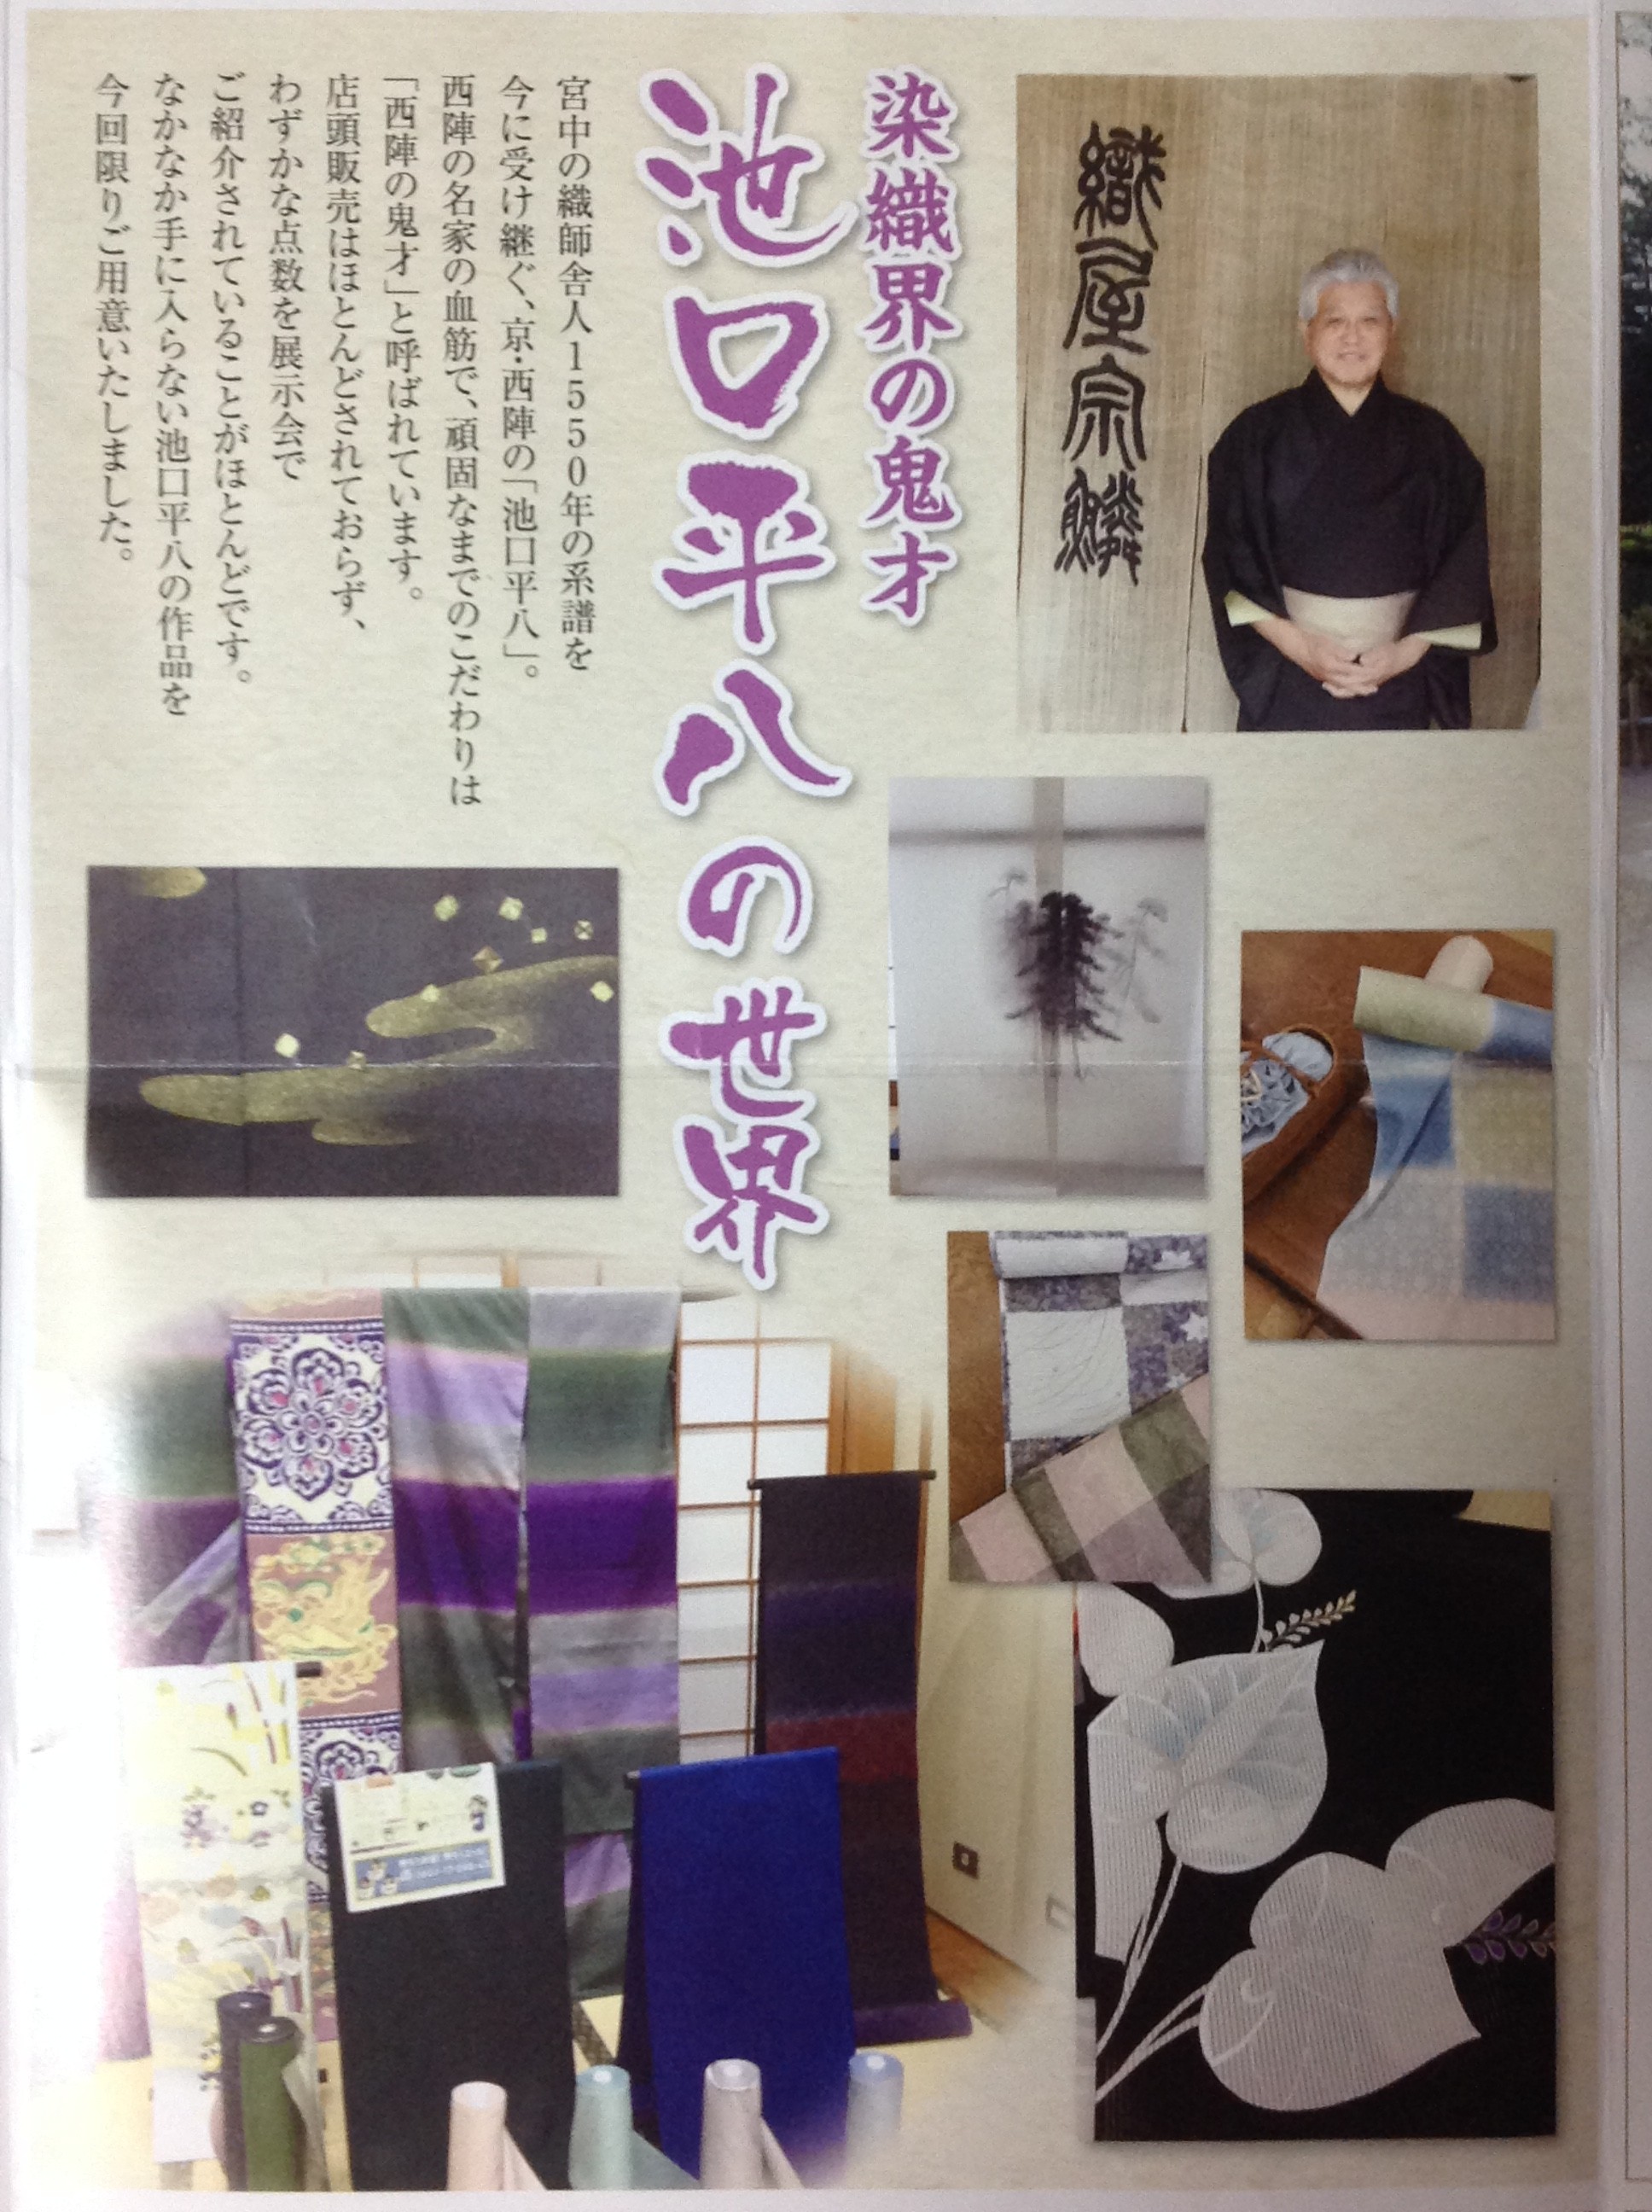 織屋宗鱗
染織界の鬼才
池口平八の世界
宮中の織師舎人1550年の系譜を
今に受け継ぐ、京・西陣の「池口平八」。
西陣の名家の血筋で、頑固なまでのこだわりは
「西陣の鬼才」と呼ばれています。
店頭販売はほとんどされておらず、
わずかな点数を展示会で
ご紹介されていることがほとんどです。
なかなか手に入らない池口平八の作品を
今回限りご用意いたしました。